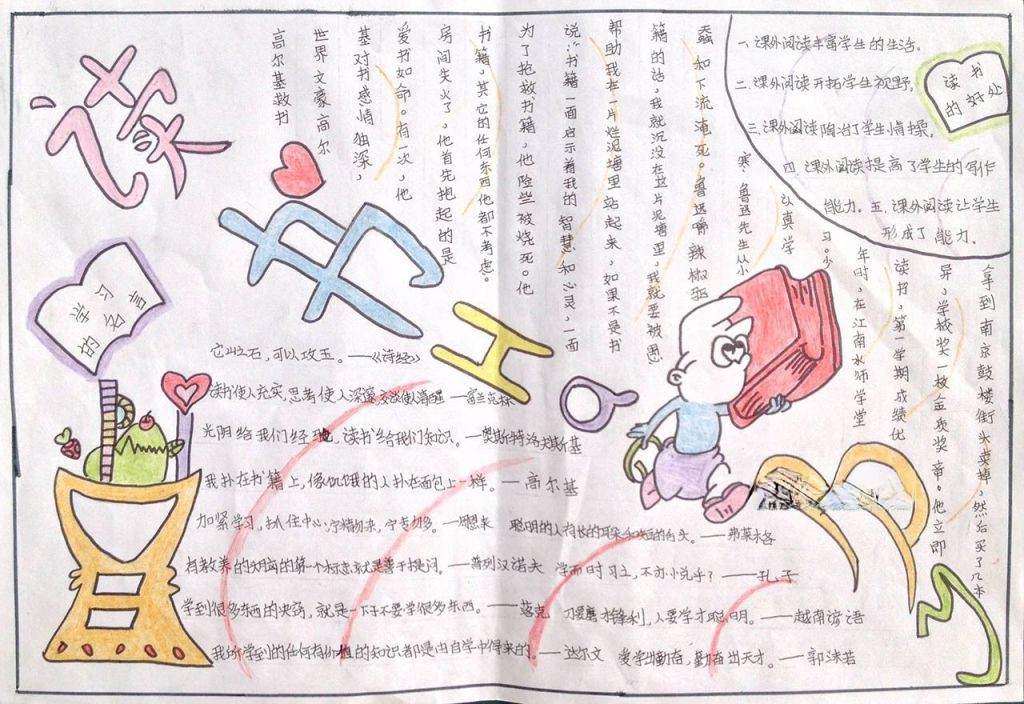 读书
高尔基救书
世界文豪高尔
基对书感情独深，
爱书如命。有一次，他
房间失火了，他首先抱起的是
书籍，其它的任何东西他都不考虑。
为了抢救书籍，他险些被烧死。他
说：书籍一面启示着我的智慧和心灵，一面
帮助我在一片烂泥塘里站起来，如果不是书
籍的话，我就沉没在这片泥塘里，我就要被愚
蠢和下流淹死。鲁迅嚼辣椒驱
寒。鲁迅先生从小
认真学
习。少
年时，在江南水师学堂
读书，第一学期成绩优
异，学校奖一枚金质奖章。他立即
拿到南京鼓楼街头卖掉，然后买了几本
读书
的好处
一、课外阅读丰富学生的生活。
二、课外阅读开拓学生视野。
三、课外阅读陶冶了学生情操。
四、课外阅读提高了学生的写作
能力。五、课外阅读让学生
形成了能力。
学习
名言
它山之石，可以攻玉。——《诗经》
读书使人充实，思考使人深邃，交谈使人清醒——富兰克林
光阴给我们经验，读书给我们知识。——奥斯特洛夫斯基
我扑在书籍上，像饥饿的人扑在面包上一样。——高尔基
加紧学习，抓住中心，宁精勿杂，宁专勿多。——周恩来
聪明的人有长的耳朵和短的舌头。——弗莱格
学而时习之，不亦小说乎？——孔子
学到很多东西的诀窍，就是一下子不要学很多东西。——洛克
刀要磨才锋利，人要学才聪明。——越南谚语
我所学到的任何有价值的知识都是由自学中得来的。——达尔文
爱学出勤奋，勤奋出天才。——郭沫若